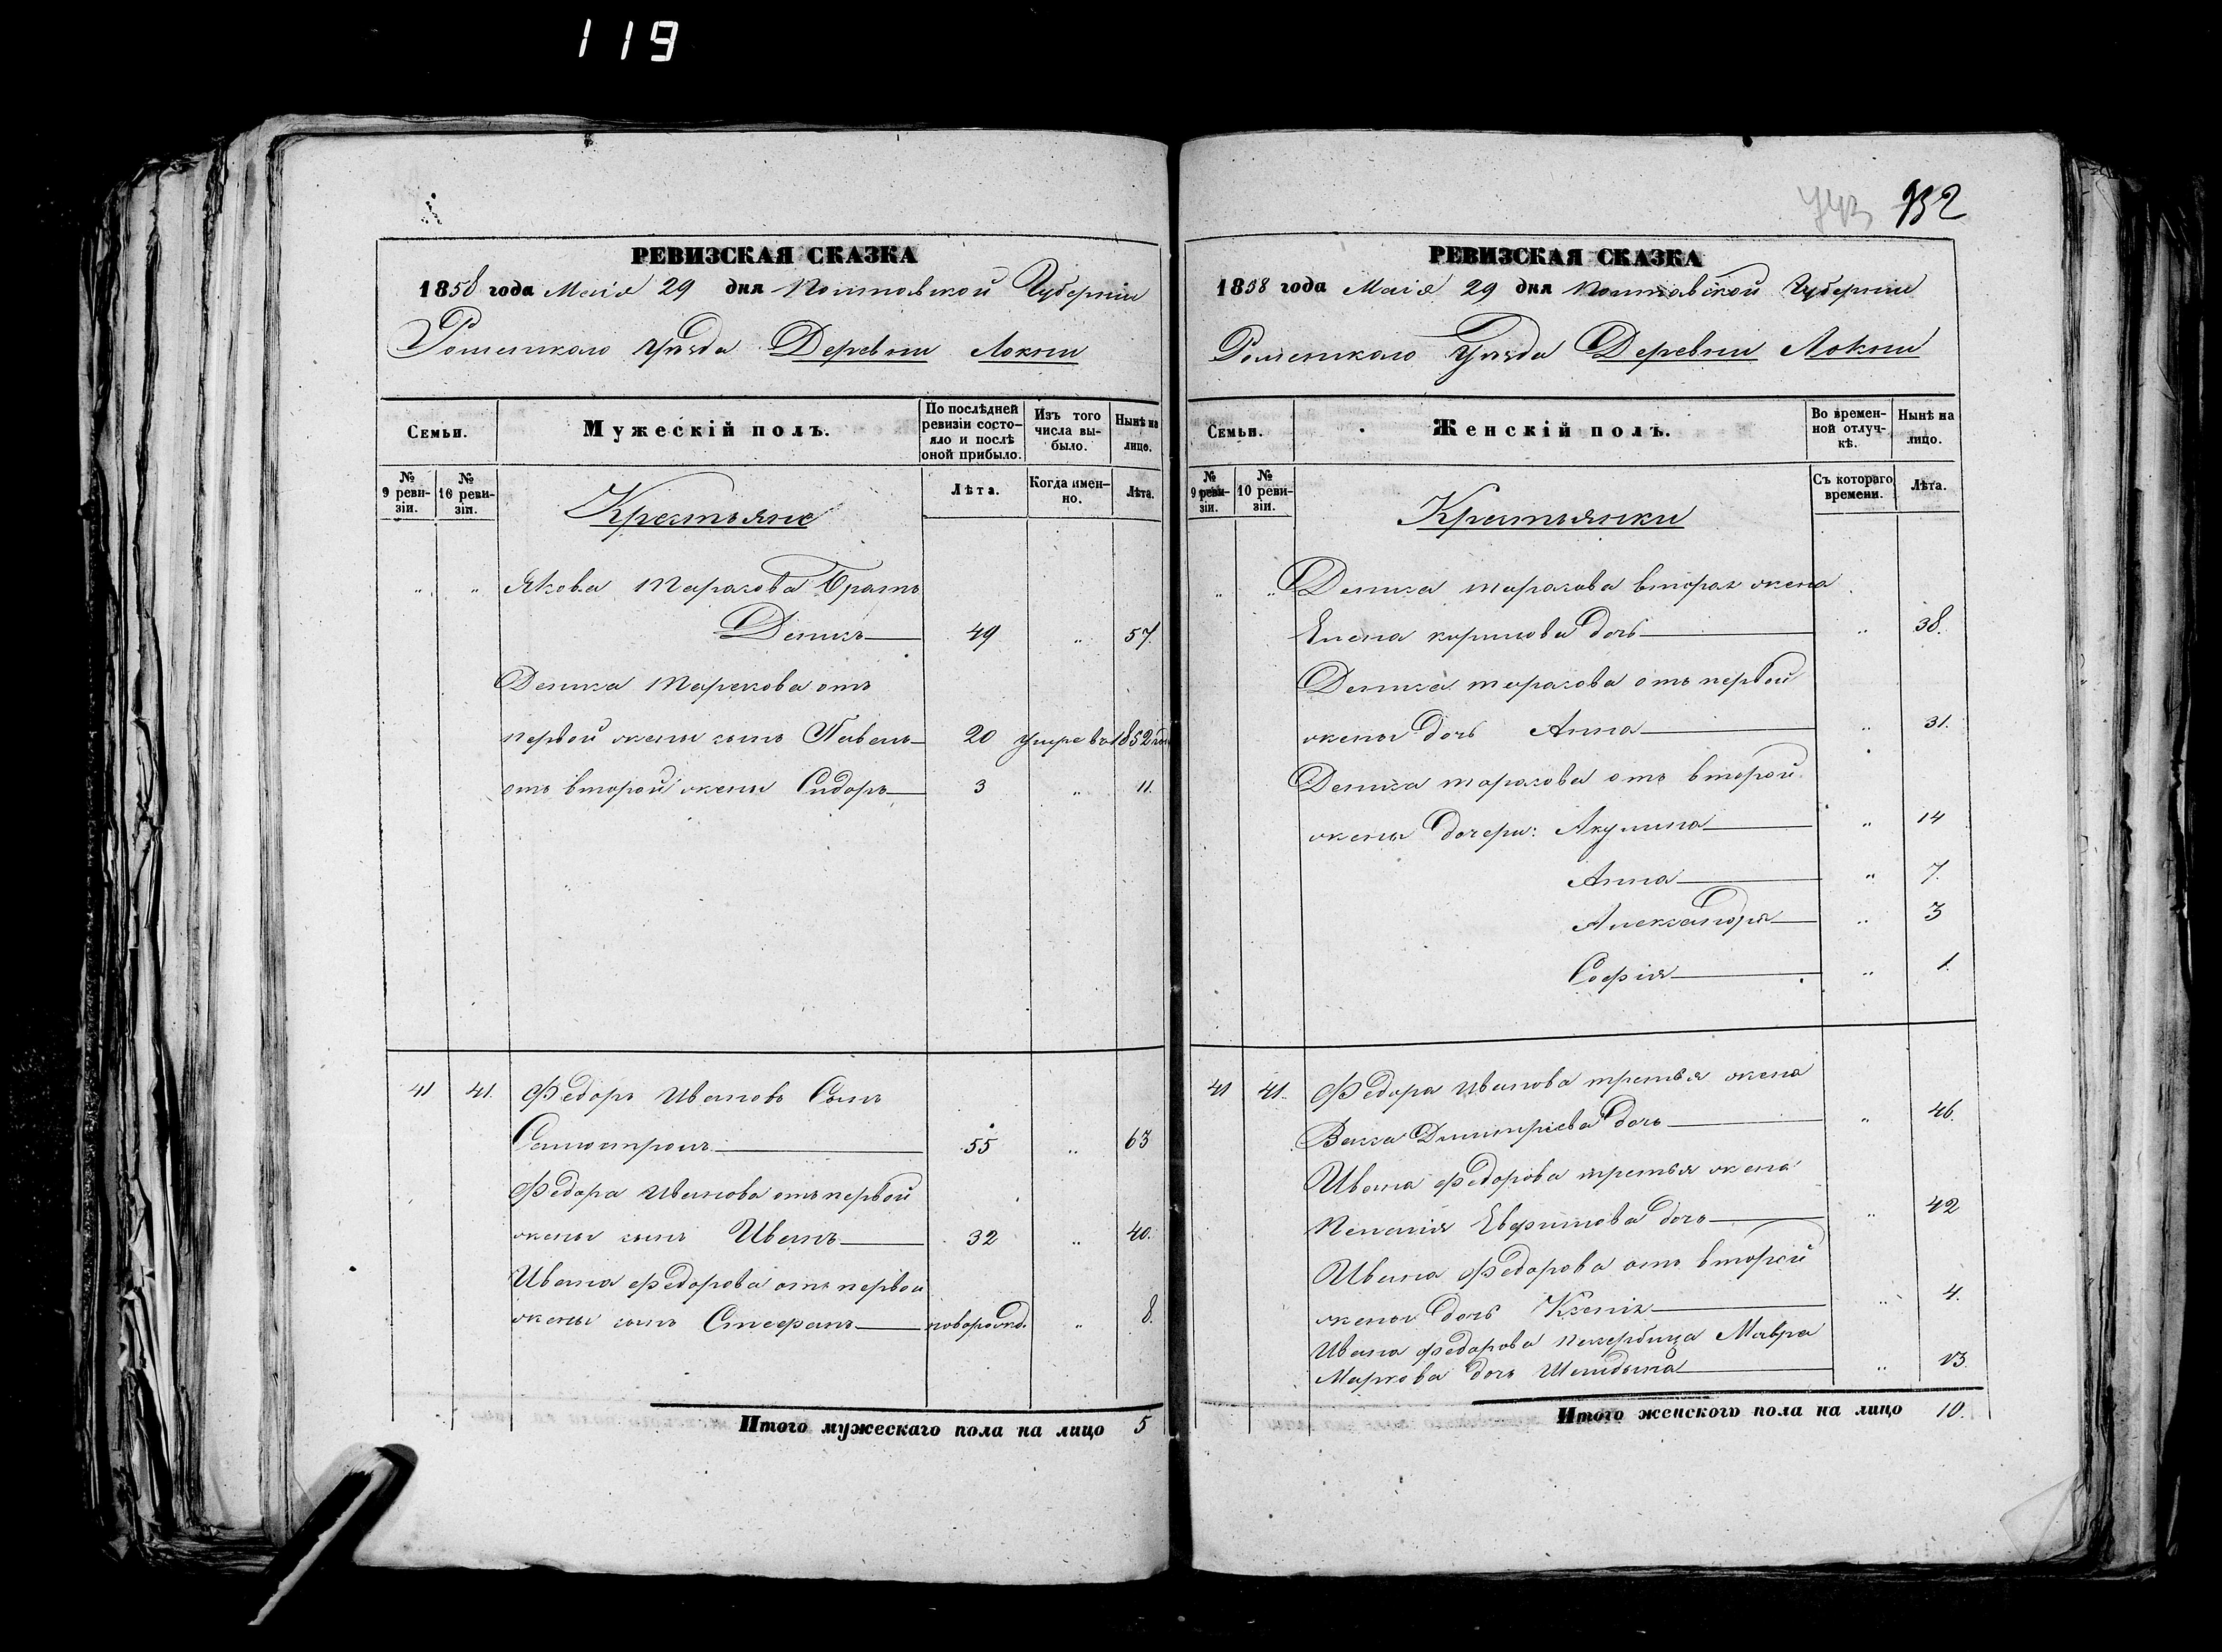 119
РЕВИЗСКАЯ СКАЗКА
1858 года Маія 29 дня Полтавской Губерніи
Роменскаго Уѣзда Деревни Локни
Семьи.
Мужескій полъ.
По послѣдней ревизіи состояло и послѣ оной прибыло.
Изъ того числа выбыло.
Нынѣ на лицо.
№ 9 ревизіи.
№ 10 ревизіи.
Крестьяне
Лѣта.
Когда именно.
Лѣта.
" " Якова Тарасова братъ
Денисъ 49 " 57.
Дениса Тарасова отъ
первой жены сынъ Павелъ 20 умре въ 1852 году
отъ второй жены Сидоръ 3 " 11.
41 41. Федоръ Ивановъ Сынъ
55 " 63
Федора Иванова отъ первой
жены сынъ Иванъ 32 " 40.
Ивана Федорова отъ первой
жены сынъ Стефанъ новорожд. " 8.
Итого мужескаго пола на лицо 5
932
РЕВИЗСКАЯ СКАЗКА
1858 года Маія 29 дня Полтавской Губерніи
Роменскаго Уѣзда Деревни Локни
Семьи.
Женскій полъ.
Во временной отлучкѣ.
Нынѣ на лицо.
№ 9 ревизіи.
№ 10 ревизіи.
Крестьянки
Съ котораго времени.
Лѣта.
" " Дениса Тарасова вторая жена
Елена Кирилова дочь " 38.
Дениса Тарасова отъ первой
жены дочь Анна " 31.
Дениса Тарасова отъ второй
жены дочери: Акулина " 14
Анна " 7.
Александра " 3
Софія " 1.
41 41. Федора Иванова третья жена
Васса Димитріева дочь " 46.
Ивана Федорова третья жена
Пелагія Евфимова дочь " 42
Ивана Федорова отъ второй
жены дочь Ксенія " 4.
Ивана Федорова падчерица Мавра
Маркова дочь " 13.
Итого женскаго пола на лицо 10.